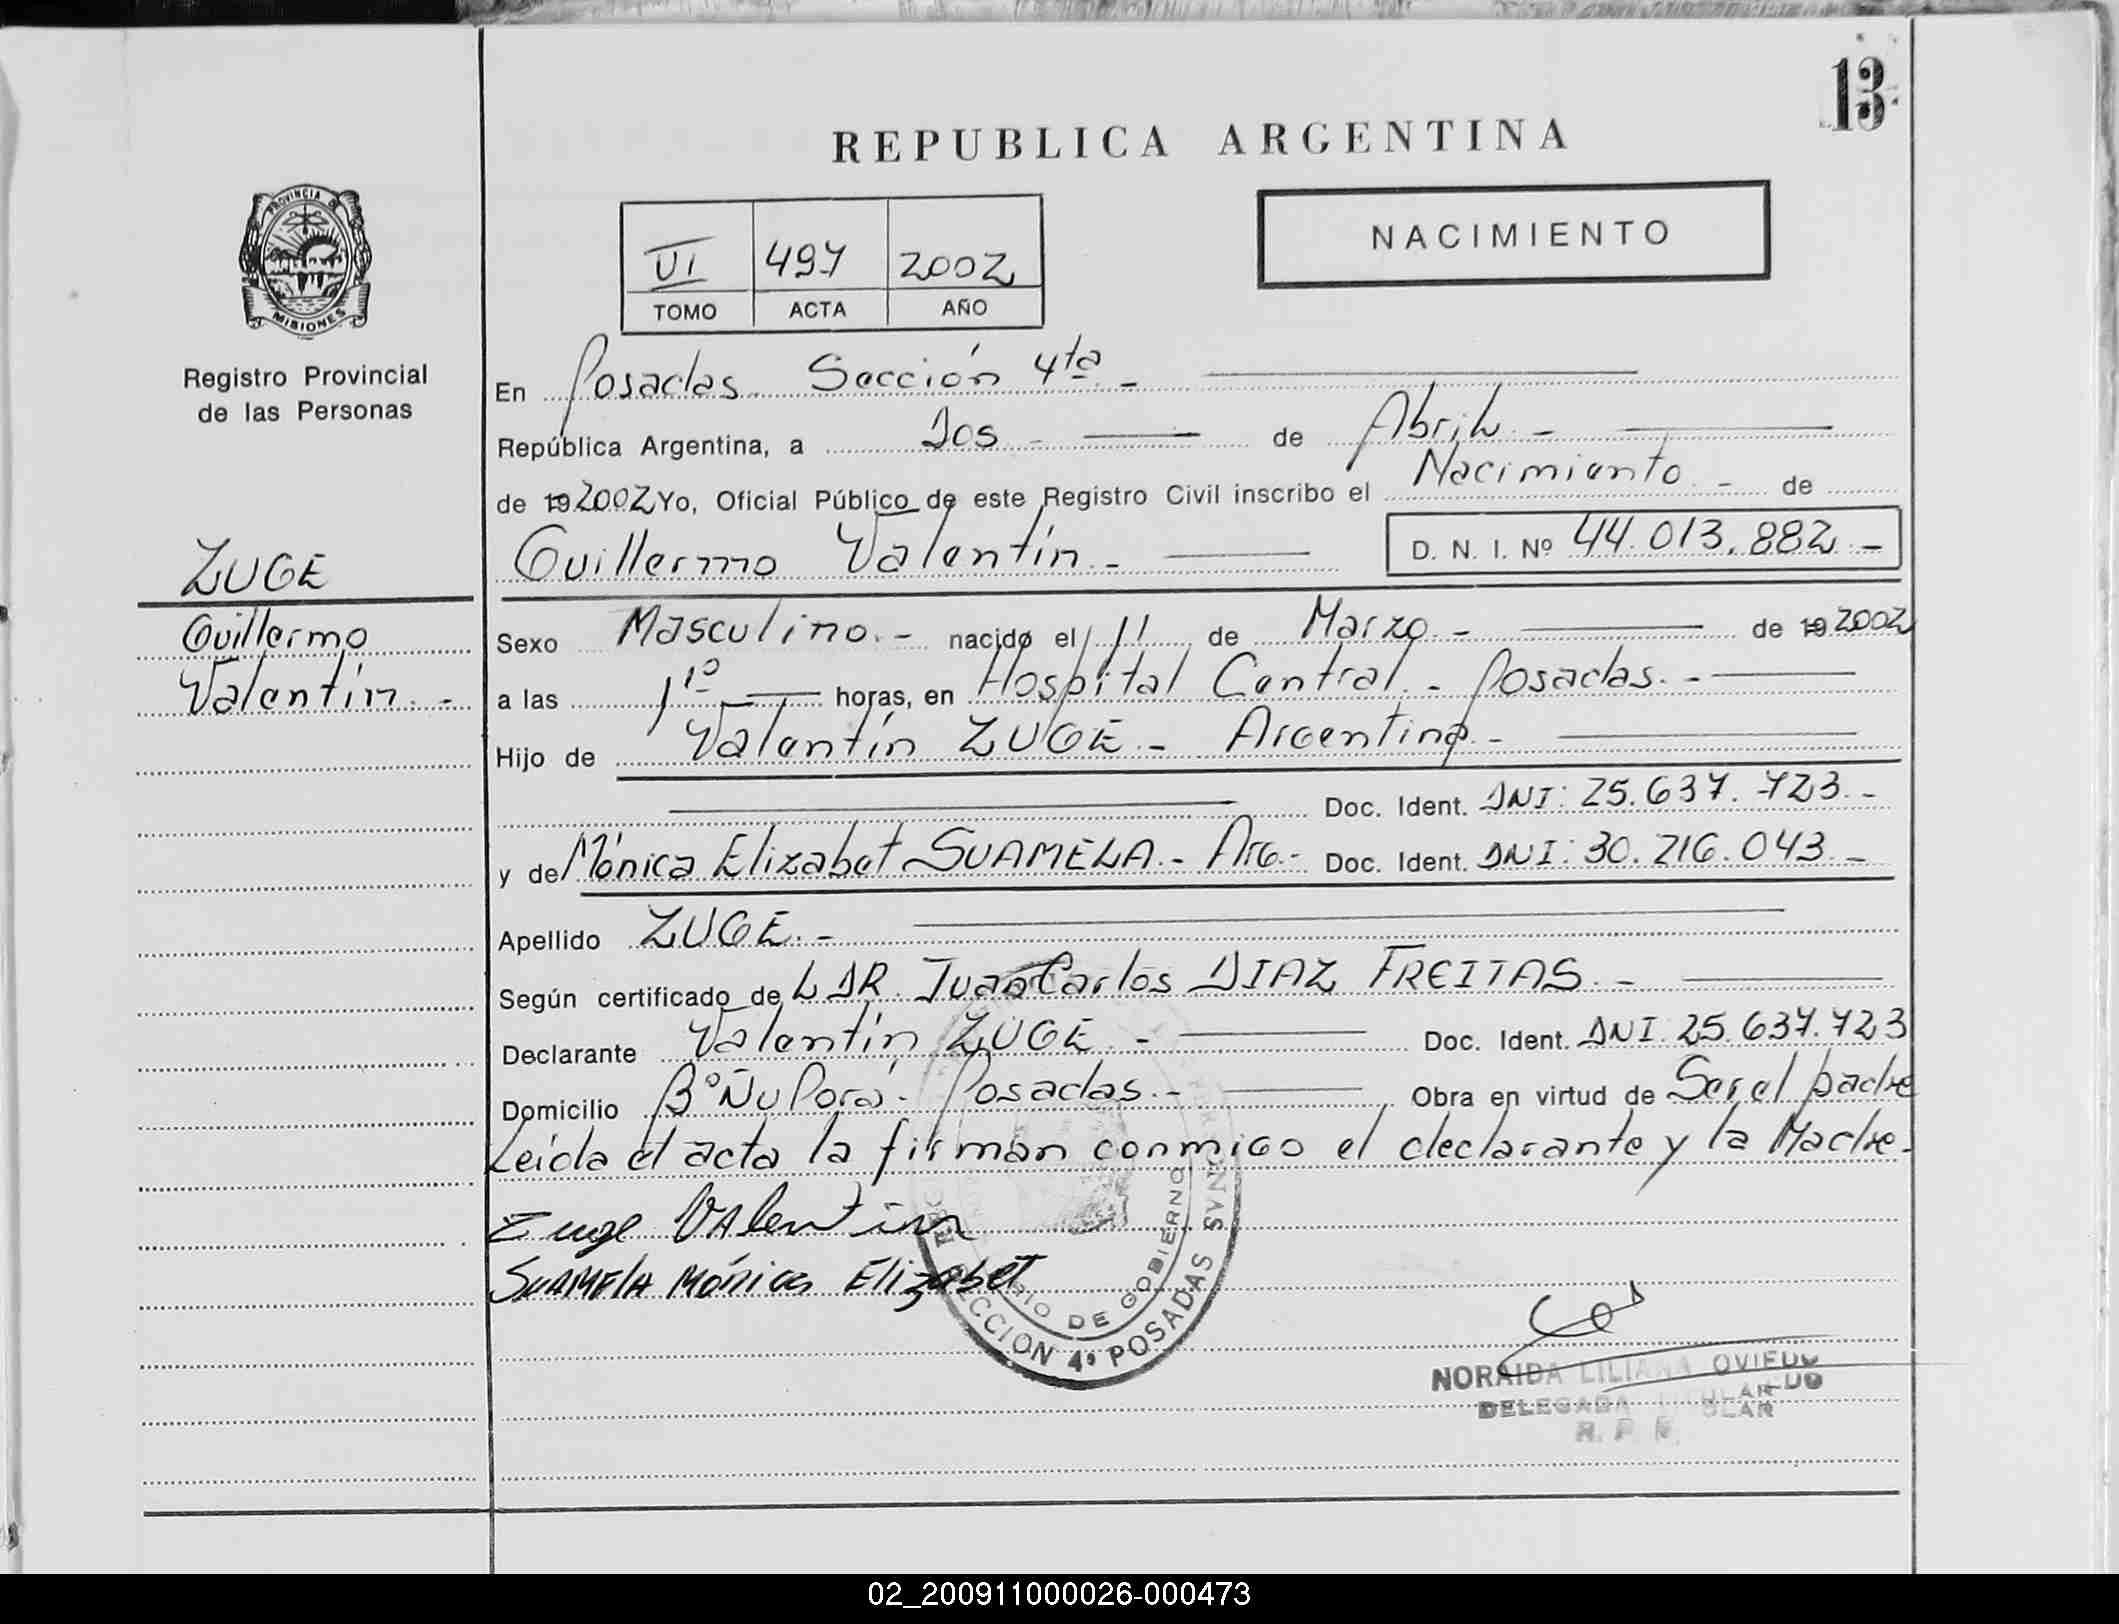 13
REPUBLICA ARGENTINA
PROVINCIA DE
MISIONES
Registro Provincial
de las Personas
VI 497 2002
TOMO ACTA AÑO
NACIMIENTO
En Posadas Sección 4ta -
República Argentina, a Dos - de Abril -
de 19 2002 Yo, Oficial Público de este Registro Civil inscribo el Nacimiento - de
Guillermo Valentín - D. N. I. Nº 44.013.882 -
ZUGE
Guillermo
Valentín. -
Sexo Masculino. - nacido el 11 de Marzo - de 19 2002
a las 1 10 horas, en Hospital Central - Posadas. -
Hijo de Valentín ZUGE - Argentino -
Doc. Ident. DNI: 25.637.723. -
y de Mónica Elizabet SUAMELA. - Arg. - Doc. Ident. DNI: 30.216.043 -
Apellido ZUGE. -
Según certificado de L DR. Juan Carlos DIAZ FREITAS. -
Declarante Valentín ZUGE. - Doc. Ident. DNI: 25.637.723
Domicilio Bº Ñu Porá - Posadas. - Obra en virtud de Ser el padre
Leída el acta la firman conmigo el declarante y la Madre.
Zuge Valentin
SUAMELA Mónica Elizabet
DE GOBIERNO
SECCION 4ª POSADAS
NORAIDA LILIANA OVIEDO
DELEGADA TITULAR
R. P. P.
02_200911000026-000473